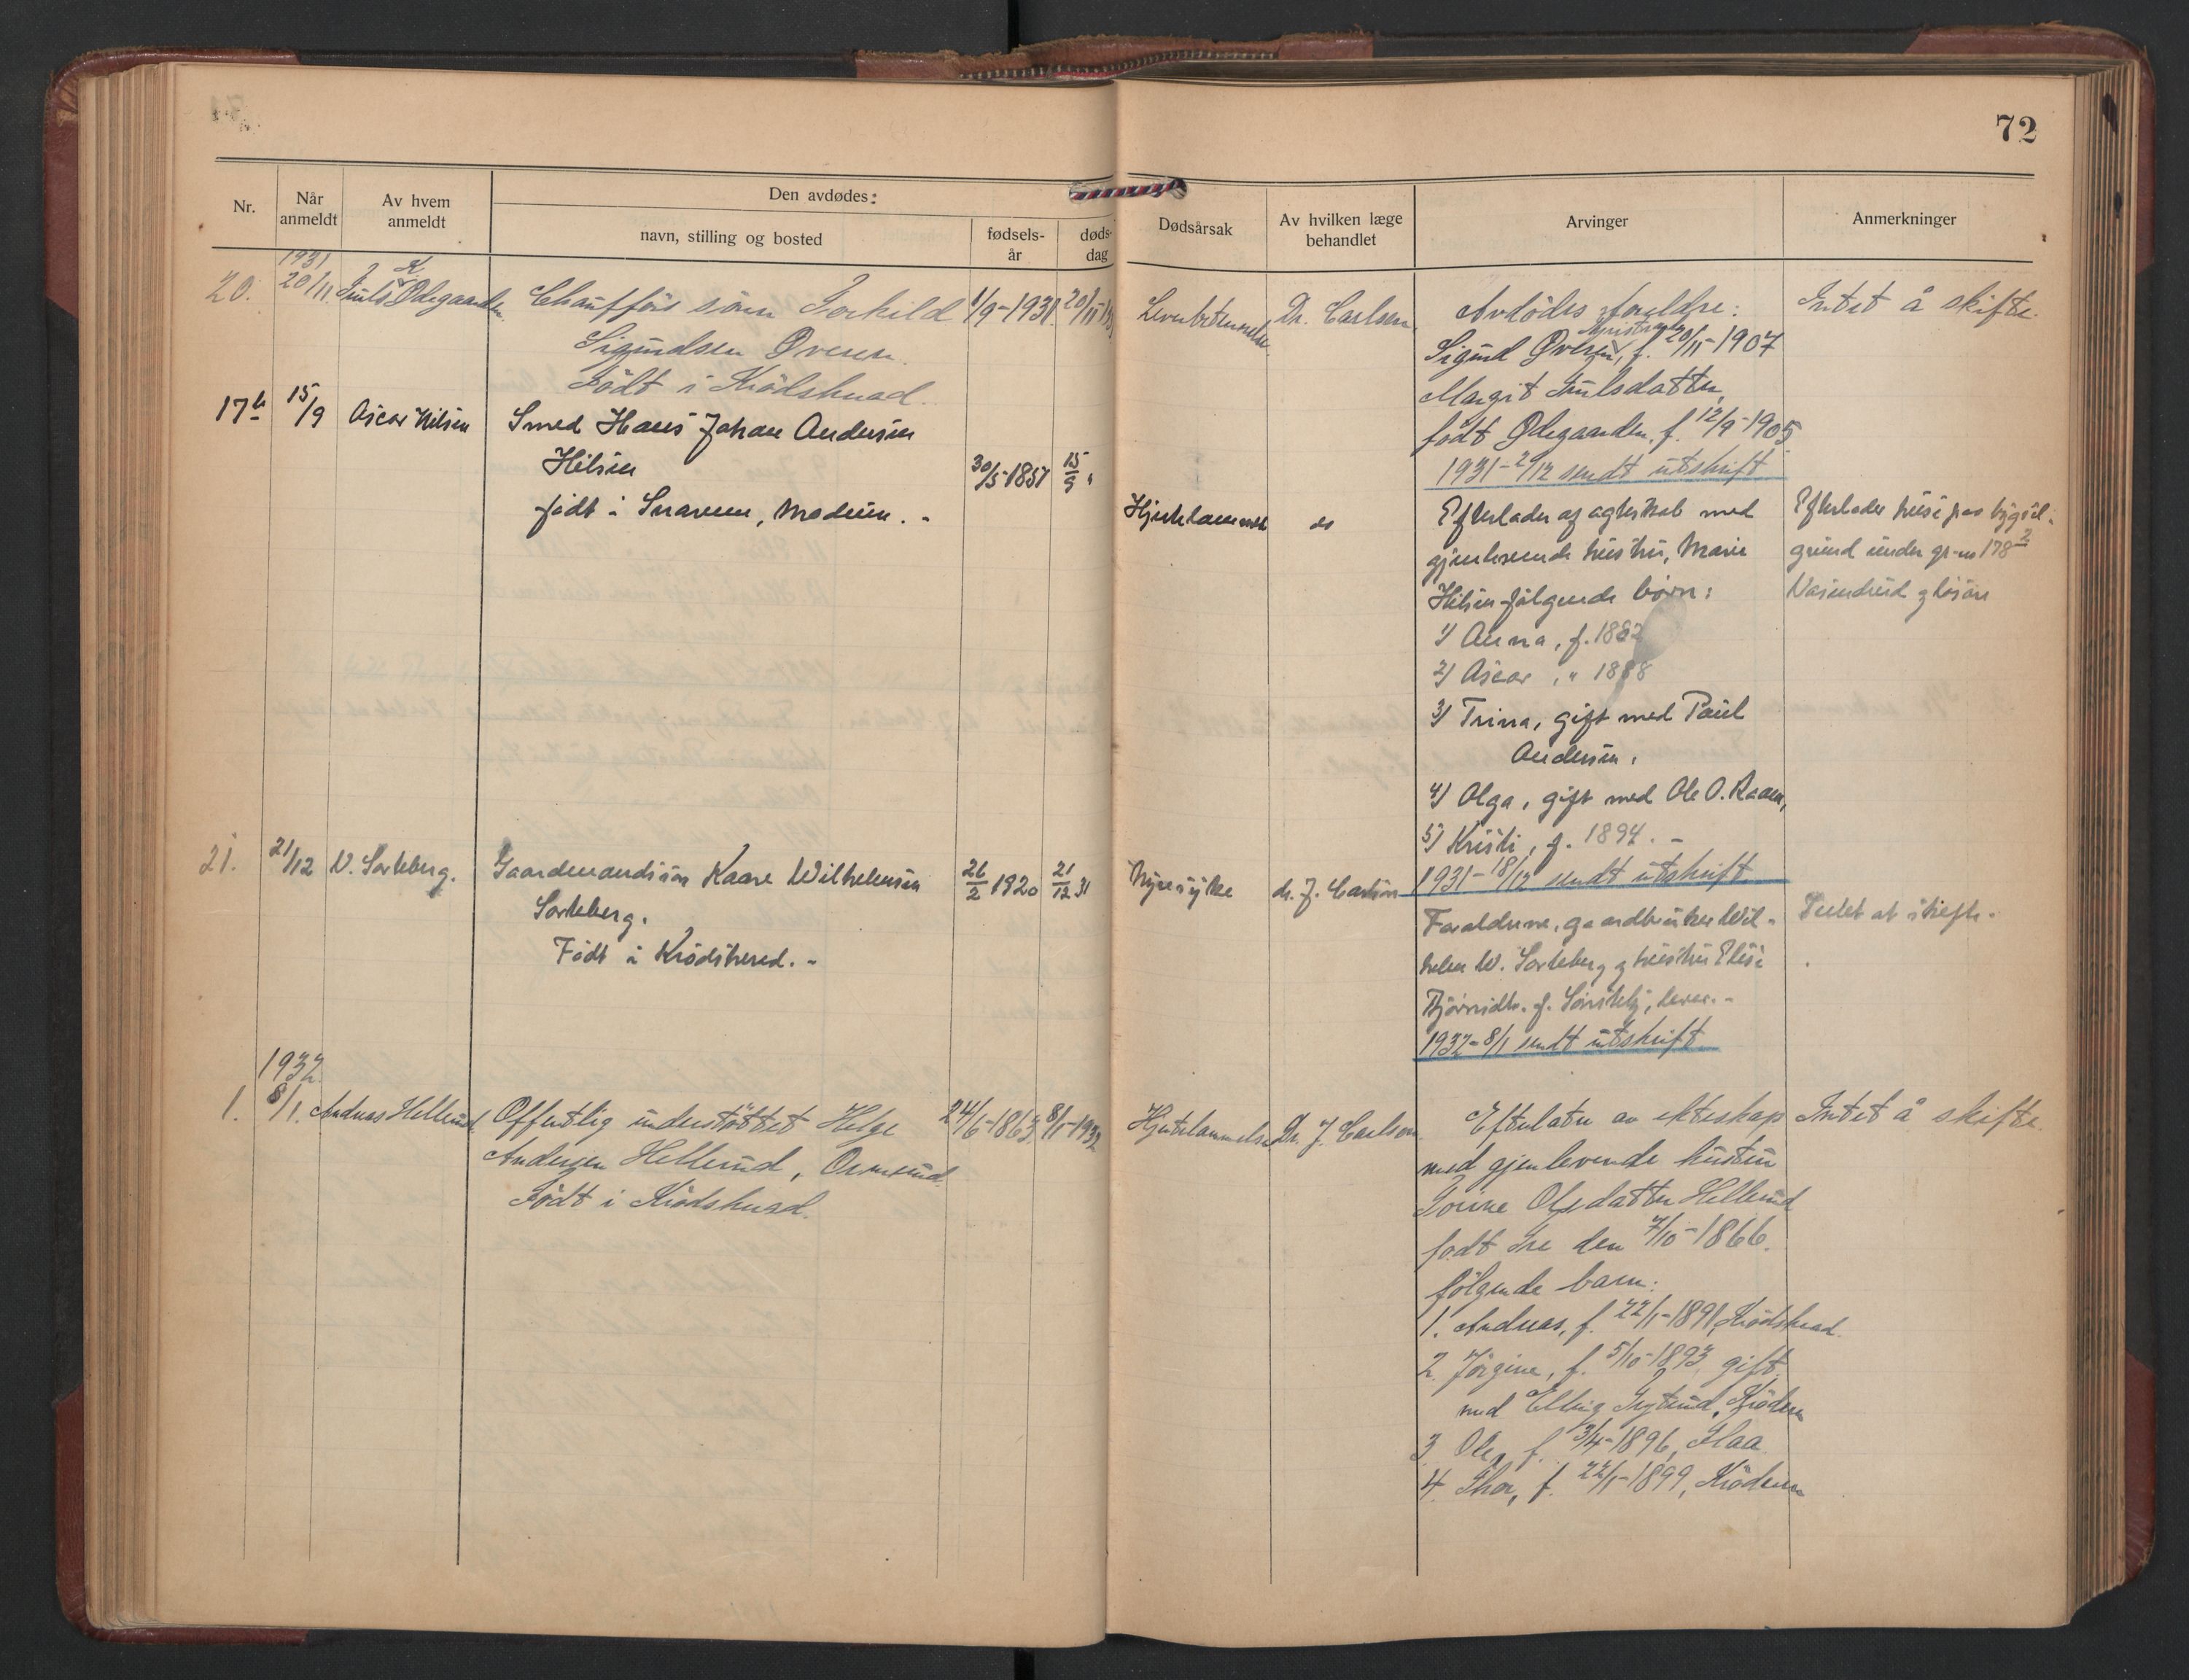 72
Nr.
Når anmeldt
Av hvem anmeldt
Den avdødes:
navn, stilling og bosted
fødsels-år
døds-dag
Dødsårsak
Av hvilken læge behandlet
Arvinger
Anmerkninger
1931
20. 20/11 K. Ødegaarden Chaufførs sønn Torkild 1/9-1931 20/11
Sigurdsen Øvesen.
Født i Krødsherad.
Dr. Carlsen
Avdødes foreldre:
Sigurd f. 20/11-1907
Margit
født Ødegaarden, f. 12/9-1905
1931-29/12 sendt utskrift
Intet å skifte.
17b 15/9 Oscar Nilsen Smed Hans Johan Andersen
Nilsen 30/5-1857 15/9
født i Snarum, Modum. -
Hjertelammelse do
Efterlader af ægteskab med
gjenlevende hustru, Marie
Nilsen følgende børn:
1) Anna, f. 1882
2) Oscar, " 1888
3) Trina, gift med Paul
Andersen,
4) Olga, gift med Ole O. Raaen,
5) Kristi, f. 1894. -
1931-18/12 sendt utskrift
Efterlader hus paa bygsel-
grund under gr-no 178 2
løsøre
21. 21/12 W. Sorteberg. Gaardmandssøn Kaare Wilhelmsen 26/2 1920 21/12 31
Sorteberg.
Født i Krødsherad. -
Nyresyke dr. J. Carlsen
Forældrene, gaardbruker Wil-
helm W. Sorteberg g hustru Elise
Bjørnsdtr. f. lever. -
1932-8/1 sendt utskrift
Intet at skifte.
1932
1. 8/1. Andreas Hellerud Offentlig understøttet Helge 24/6-1863 8/1-1932
Andersen Hellerud,
Født i Krødsherad.
Hjertelammelse Dr. J. Carlsen
Efterlater av ekteskap
med gjenlevende hustru
Olsdatter Hellerud
født den 7/10-1866.
følgende barn:
1. Andreas, f. 22/1-1891, Krødsherad.
2. Jørgine, f. 5/10-1893, gift
med Krøderen
3. Ole, f. 3/4-1896, Flaa
4. Thor, f. 22/1-1899, Krøderen
Intet å skifte.